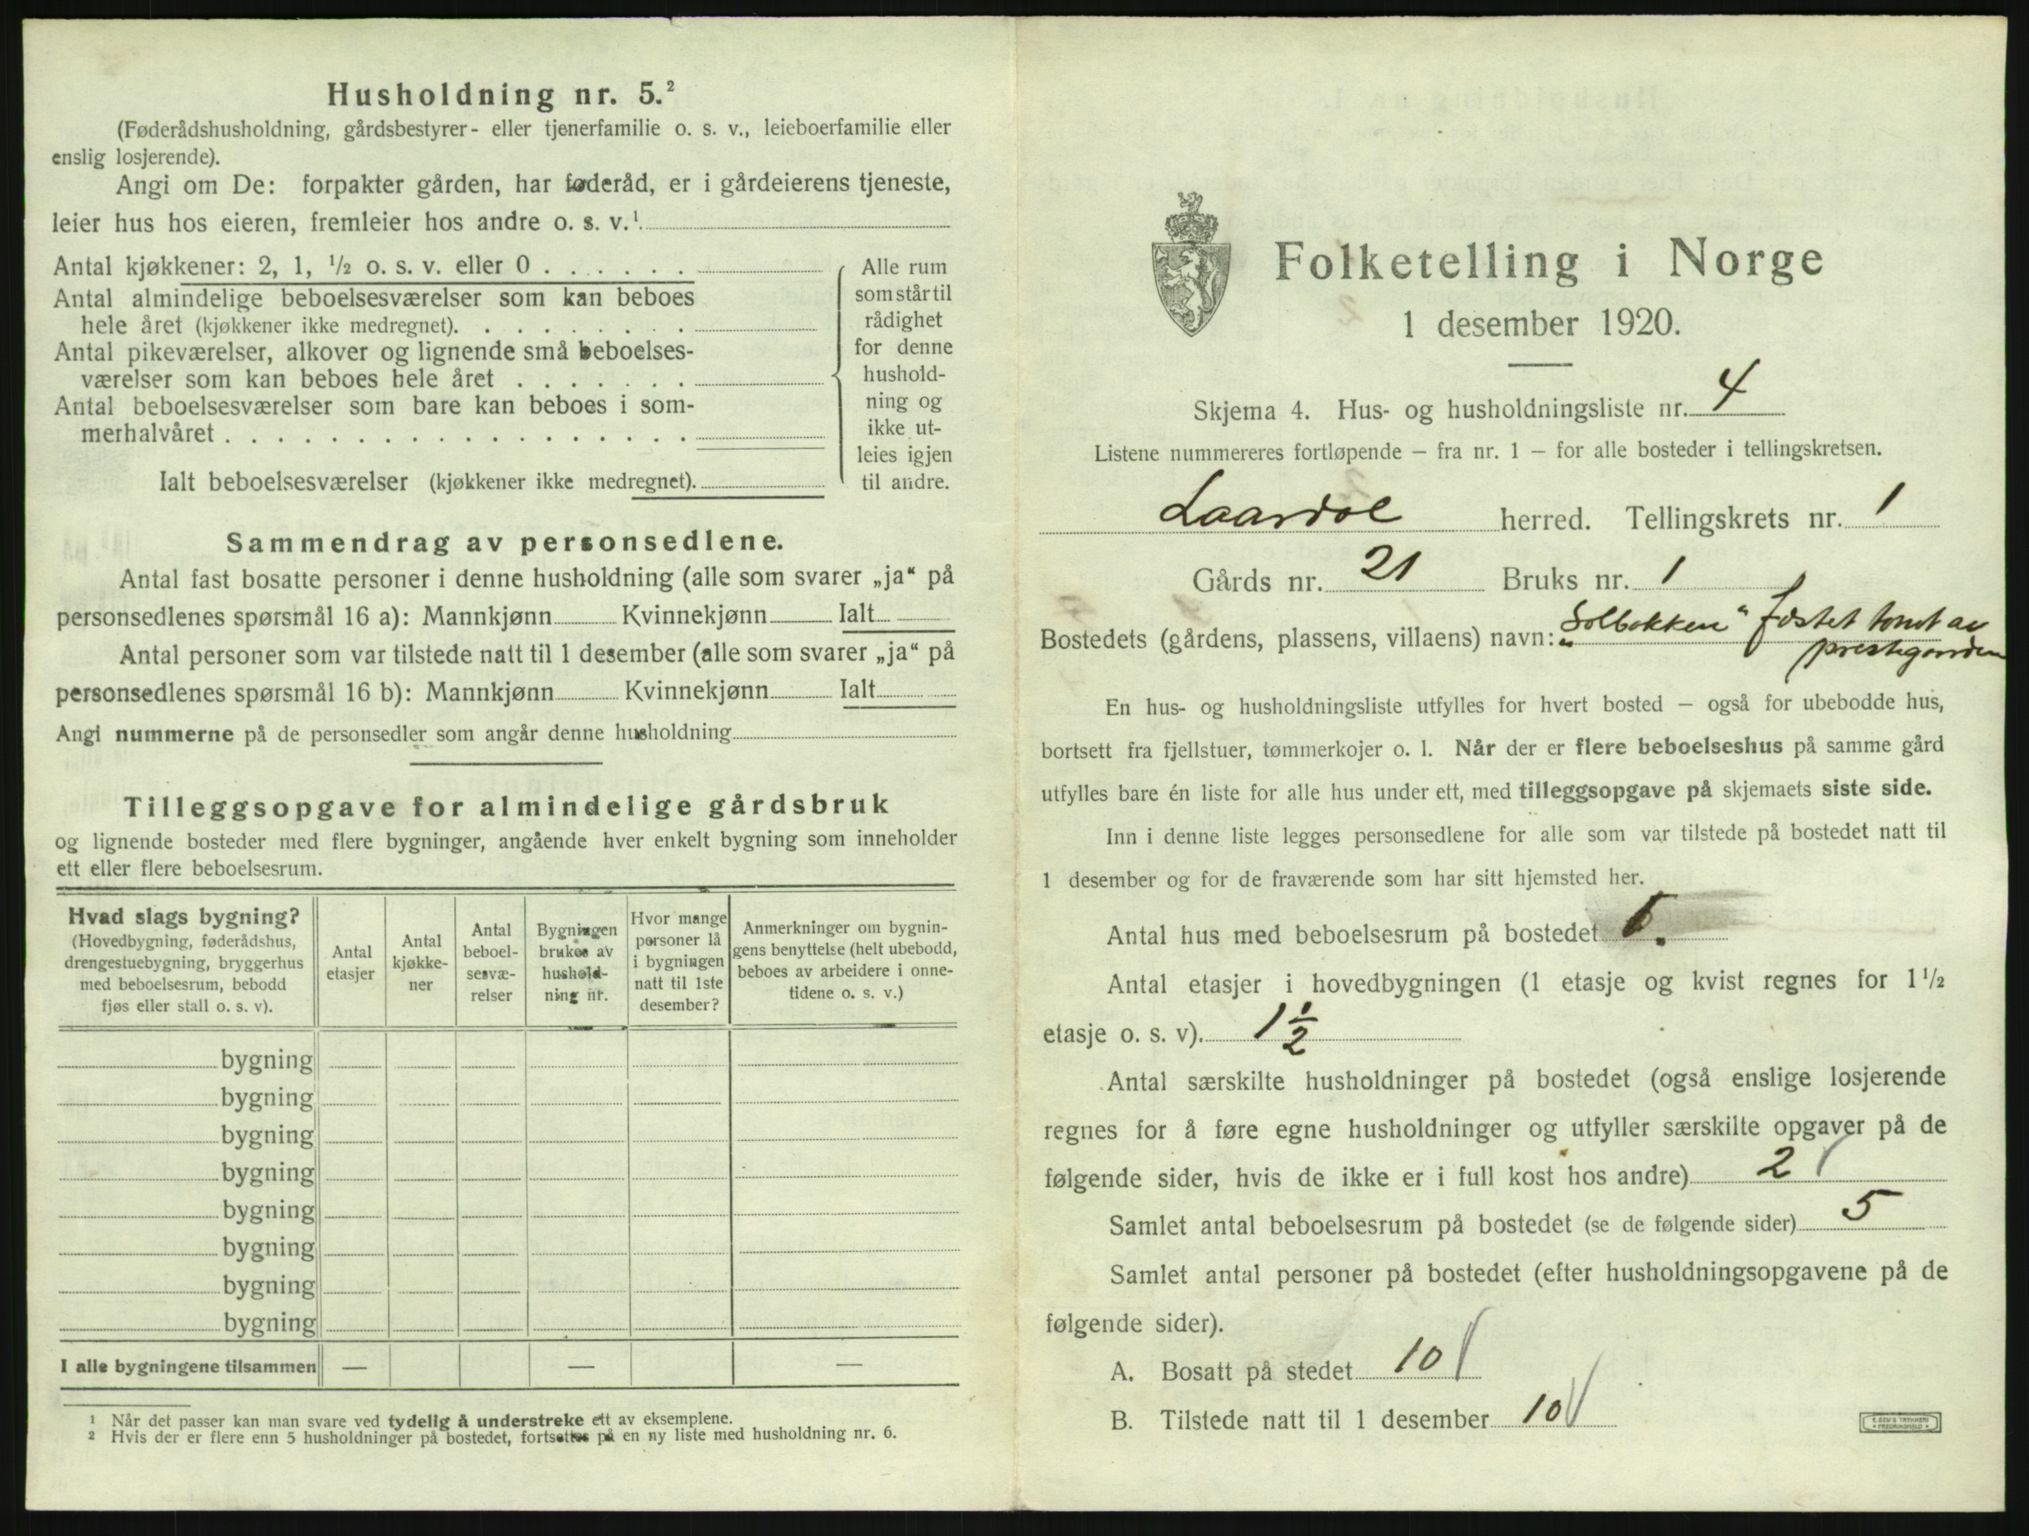 Husholdning nr. 5.²
(Føderådshusholdning, gårdsbestyrer- eller tjenerfamilie o. s. v., leieboerfamilie eller
enslig losjerende).
Angi om De: forpakter gården, har føderåd, er i gårdeierens tjeneste,
leier hus hos eieren, fremleier hos andre o. s. v.¹
Antal kjøkkener: 2, 1, ½ o. s. v. eller 0
Antal almindelige beboelsesværelser som kan beboes
hele året (kjøkkener ikke medregnet).
Antal pikeværelser, alkover og lignende små beboelses-
værelser som kan beboes hele året
Antal beboelsesværelser som bare kan beboes i som-
merhalvåret
Ialt beboelsesværelser (kjøkkener ikke medregnet).
Alle rum
som står til
rådighet
for denne
hushold-
ning og
ikke ut-
leies igjen
til andre.
Sammendrag av personsedlene.
Antal fast bosatte personer i denne husholdning (alle som svarer „ja“ på
personsedlenes spørsmål 16 a): Mannkjønn Kvinnekjønn Ialt
Antal personer som var tilstede natt til 1 desember (alle som svarer „ja“ på
personsedlenes spørsmål 16 b): Mannkjønn Kvinnekjønn Ialt
Angi nummerne på de personsedler som angår denne husholdning
Tilleggsopgave for almindelige gårdsbruk
og lignende bosteder med flere bygninger, angående hver enkelt bygning som inneholder
ett eller flere beboelsesrum.
Hvad slags bygning?
(Hovedbygning, føderådshus,
drengestuebygning, bryggerhus
med beboelsesrum, bebodd
fjøs eller stall o. s. v).
Antal
etasjer
Antal
kjøkke-
ner
Antal
beboel-
sesvæ-
relser
Bygningen
brukes av
hushold-
ning nr.
Hvor mange
personer lå
i bygningen
natt til 1ste
desember?
Anmerkninger om bygnin-
gens benyttelse (helt ubebodd,
beboes av arbeidere i onne-
tidene o. s. v.)
bygning
bygning
bygning
bygning
bygning
bygning
bygning
bygning
I alle bygningene tilsammen — — —
¹ Når det passer kan man svare ved tydelig å understreke ett av eksemplene.
² Hvis der er flere enn 5 husholdninger på bostedet, fortsettes på en ny liste med husholdning nr. 6.
Folketelling i Norge
1 desember 1920.
Skjema 4. Hus- og husholdningsliste nr. 4
Listene nummereres fortløpende – fra nr. 1 – for alle bosteder i tellingskretsen.
Laardal herred. Tellingskrets nr. 1
Gårds nr. 21 Bruks nr. 1
Bostedets (gårdens, plassens, villaens) navn: „Solbakken“ festet tomt av
prestegaarden
En hus- og husholdningsliste utfylles for hvert bosted – også for ubebodde hus,
bortsett fra fjellstuer, tømmerkojer o. l. Når der er flere beboelseshus på samme gård
utfylles bare én liste for alle hus under ett, med tilleggsopgave på skjemaets siste side.
Inn i denne liste legges personsedlene for alle som var tilstede på bostedet natt til
1 desember og for de fraværende som har sitt hjemsted her.
Antal hus med beboelsesrum på bostedet 1.
Antal etasjer i hovedbygningen (1 etasje og kvist regnes for 1 ½
etasje o. s. v). 1 ½
Antal særskilte husholdninger på bostedet (også enslige losjerende
regnes for å føre egne husholdninger og utfyller særskilte opgaver på de
følgende sider, hvis de ikke er i full kost hos andre) 2
Samlet antal beboelsesrum på bostedet (se de følgende sider) 5
Samlet antal personer på bostedet (efter husholdningsopgavene på de
følgende sider).
A. Bosatt på stedet 10
B. Tilstede natt til 1 desember 10